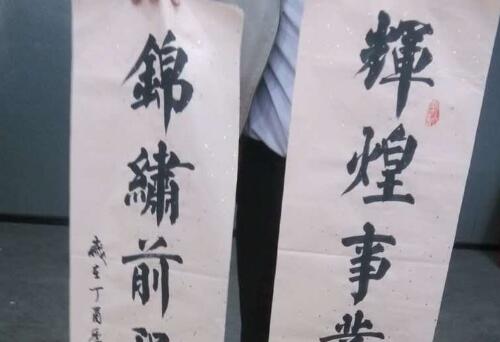 輝煌事業
錦繡前
歲在丁酉